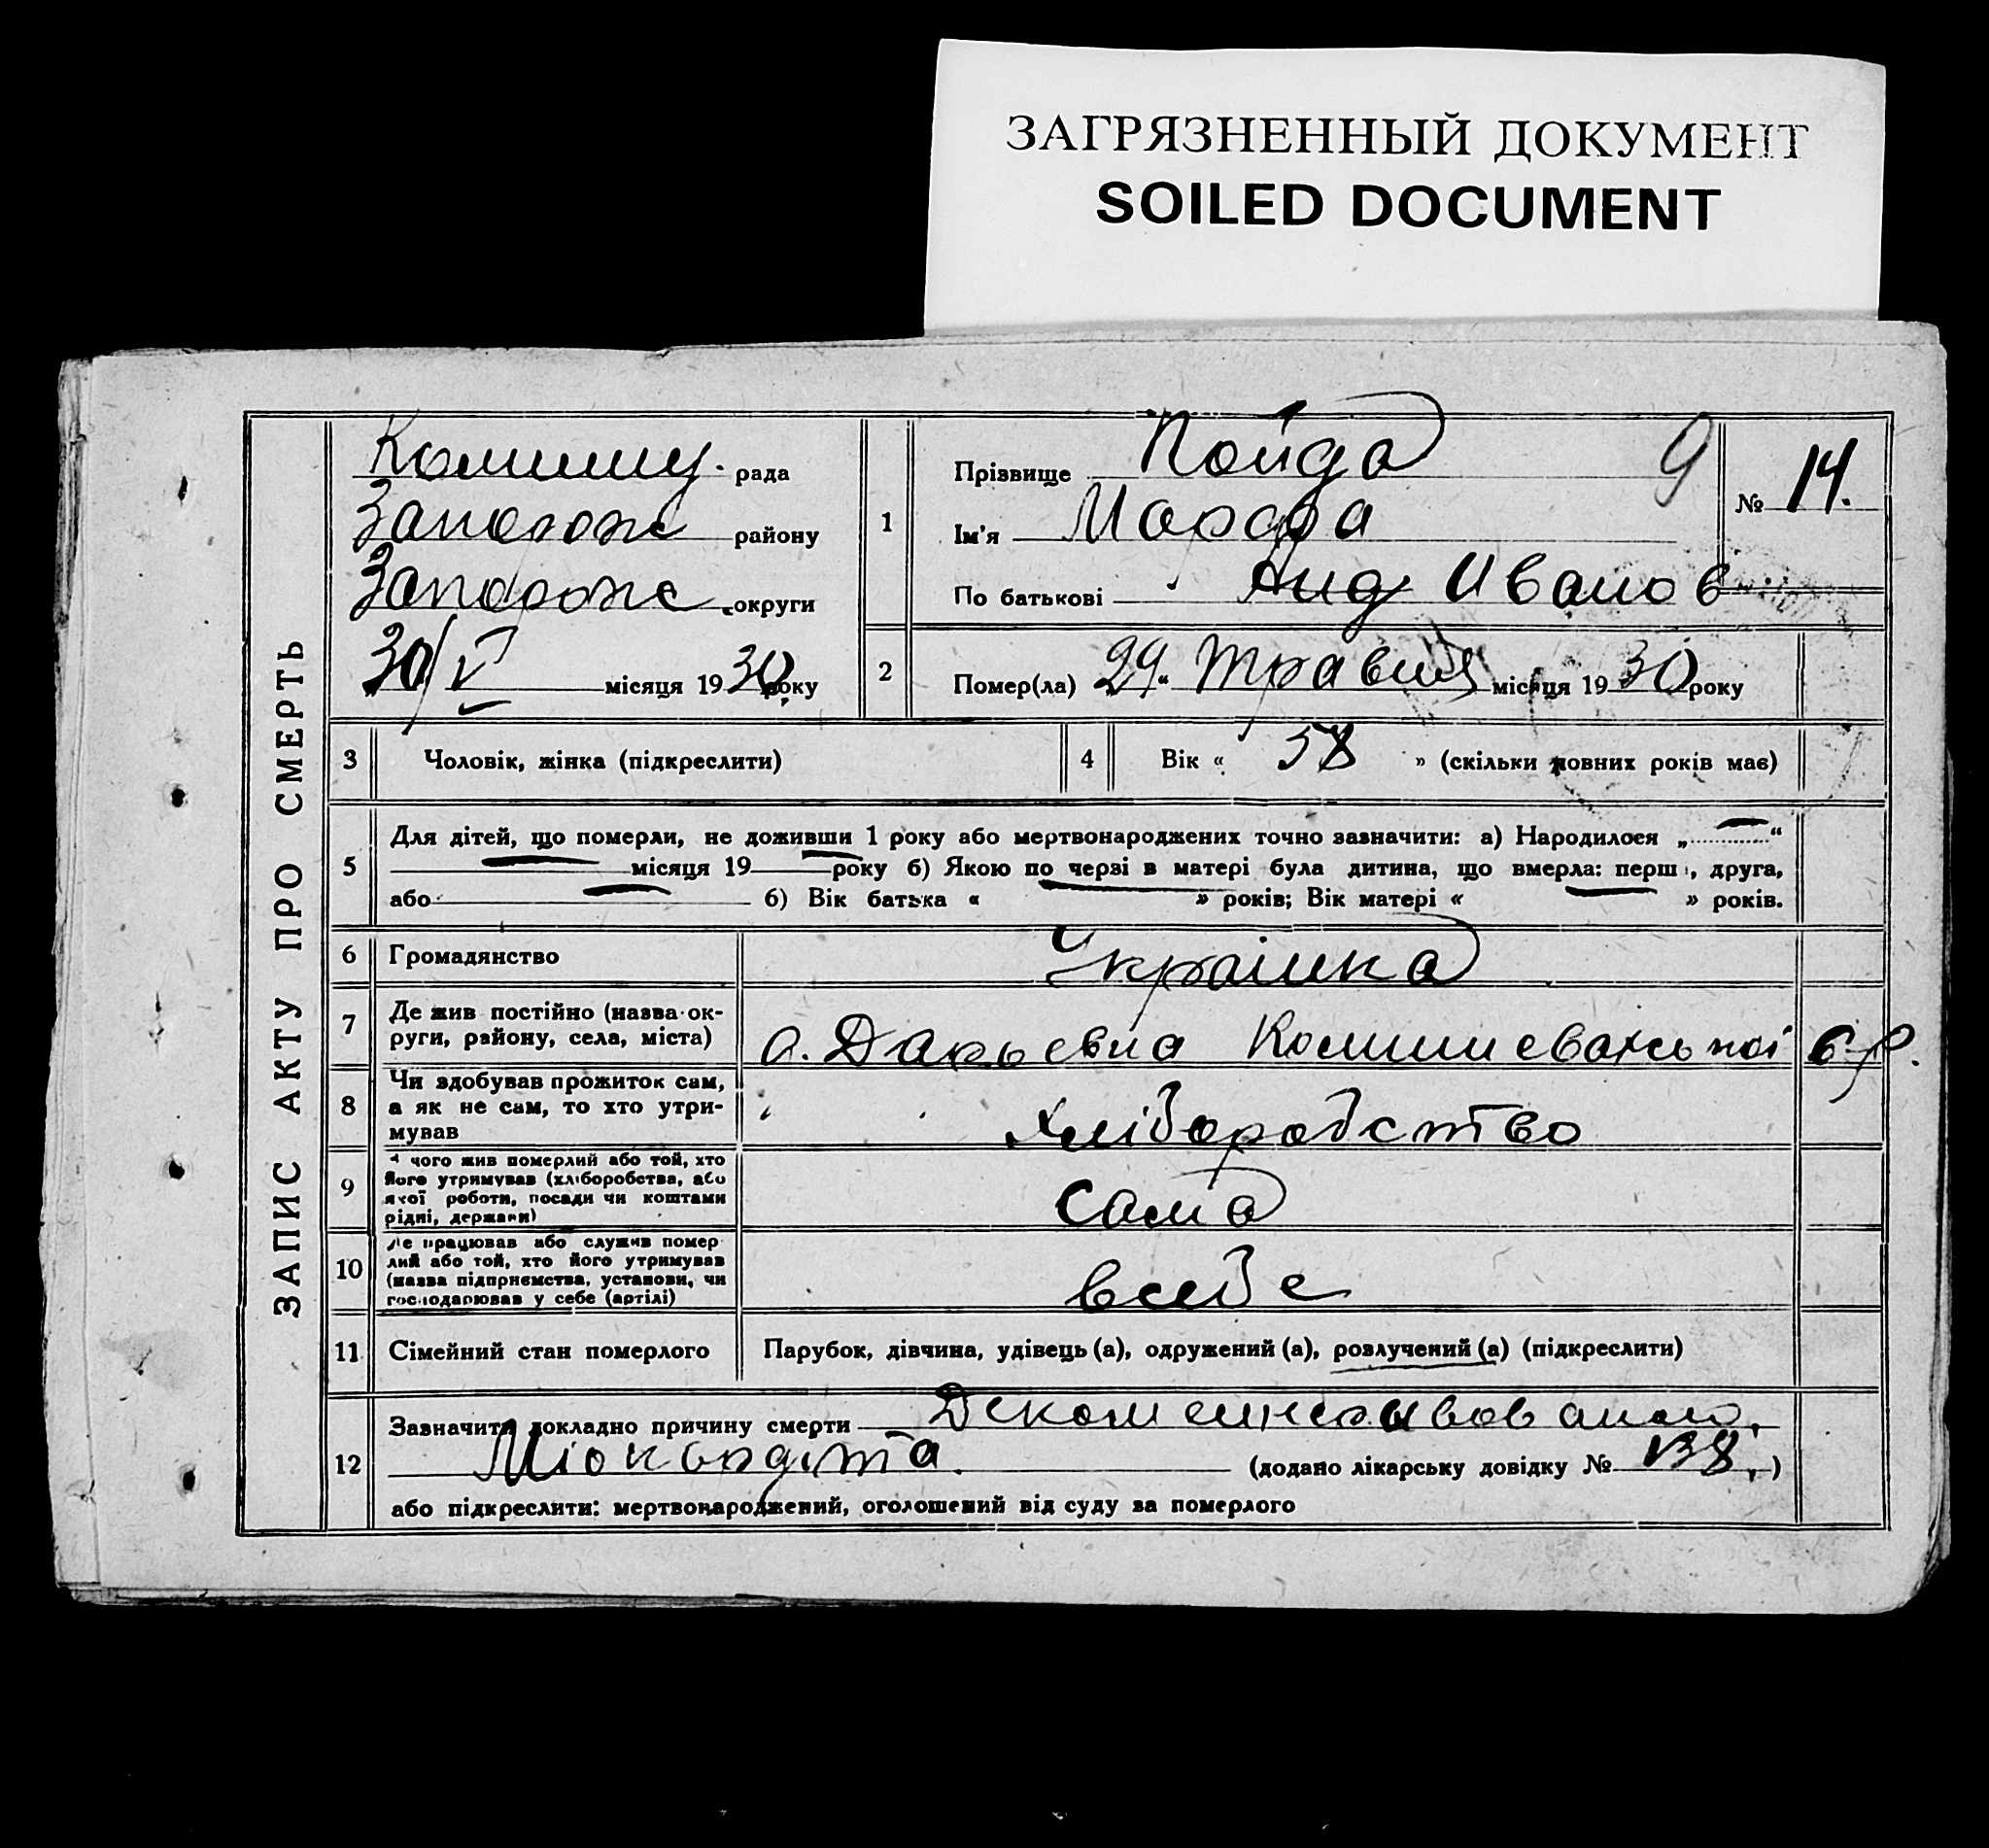 ЗАГРЯЗНЕННЫЙ ДОКУМЕНТ
SOILED DOCUMENT
ЗАПИС АКТУ ПРО СМЕРТЬ
Комишу. рада
Запорож району
Запорож округи
30/V місяця 1930 року
1
Прізвище Пойда 9
№ 14.
Ім'я Марфа
По батькові Анд Иванов
2
Помер(ла) 29 " травня місяця 1930 року
3 Чоловік, жінка (підкреслити)
4 Вік « 58 » (скільки повних років має)
5 Для дітей, що померли, не доживши 1 року або мертвонароджених точно зазначити: а) Народилося „ “
місяця 19 року б) Якою по черзі в матері була дитина, що вмерла: перша, друга,
або б) Вік батька « » років; Вік матері « » років.
6 Громадянство Украінка
7 Де жив постійно (назва ок-
руги, району, села, міста) с. Дарьевка Комишеваської с/р.
8 Чи здобував прожиток сам,
а як не сам, то хто утри-
мував хліборобство
9 З чого жив померлий або той, хто
його утримував (хліборобства, або
якої роботи, посади чи коштами
рідні, держави) Сама
10 Де працював або служив помер
лий або той, хто його утримував
(назва підприємства, установи, чи
господарював у себе (артілі) всебе
11 Сімейний стан померлого Парубок, дівчина, удівець (а), одружений (а), розлучений (а) (підкреслити)
12 Зазначити докладно причину смерти
Міокардита (додано лікарську довідку № 138.)
або підкреслити: мертвонароджений, оголошений від суду за померлого